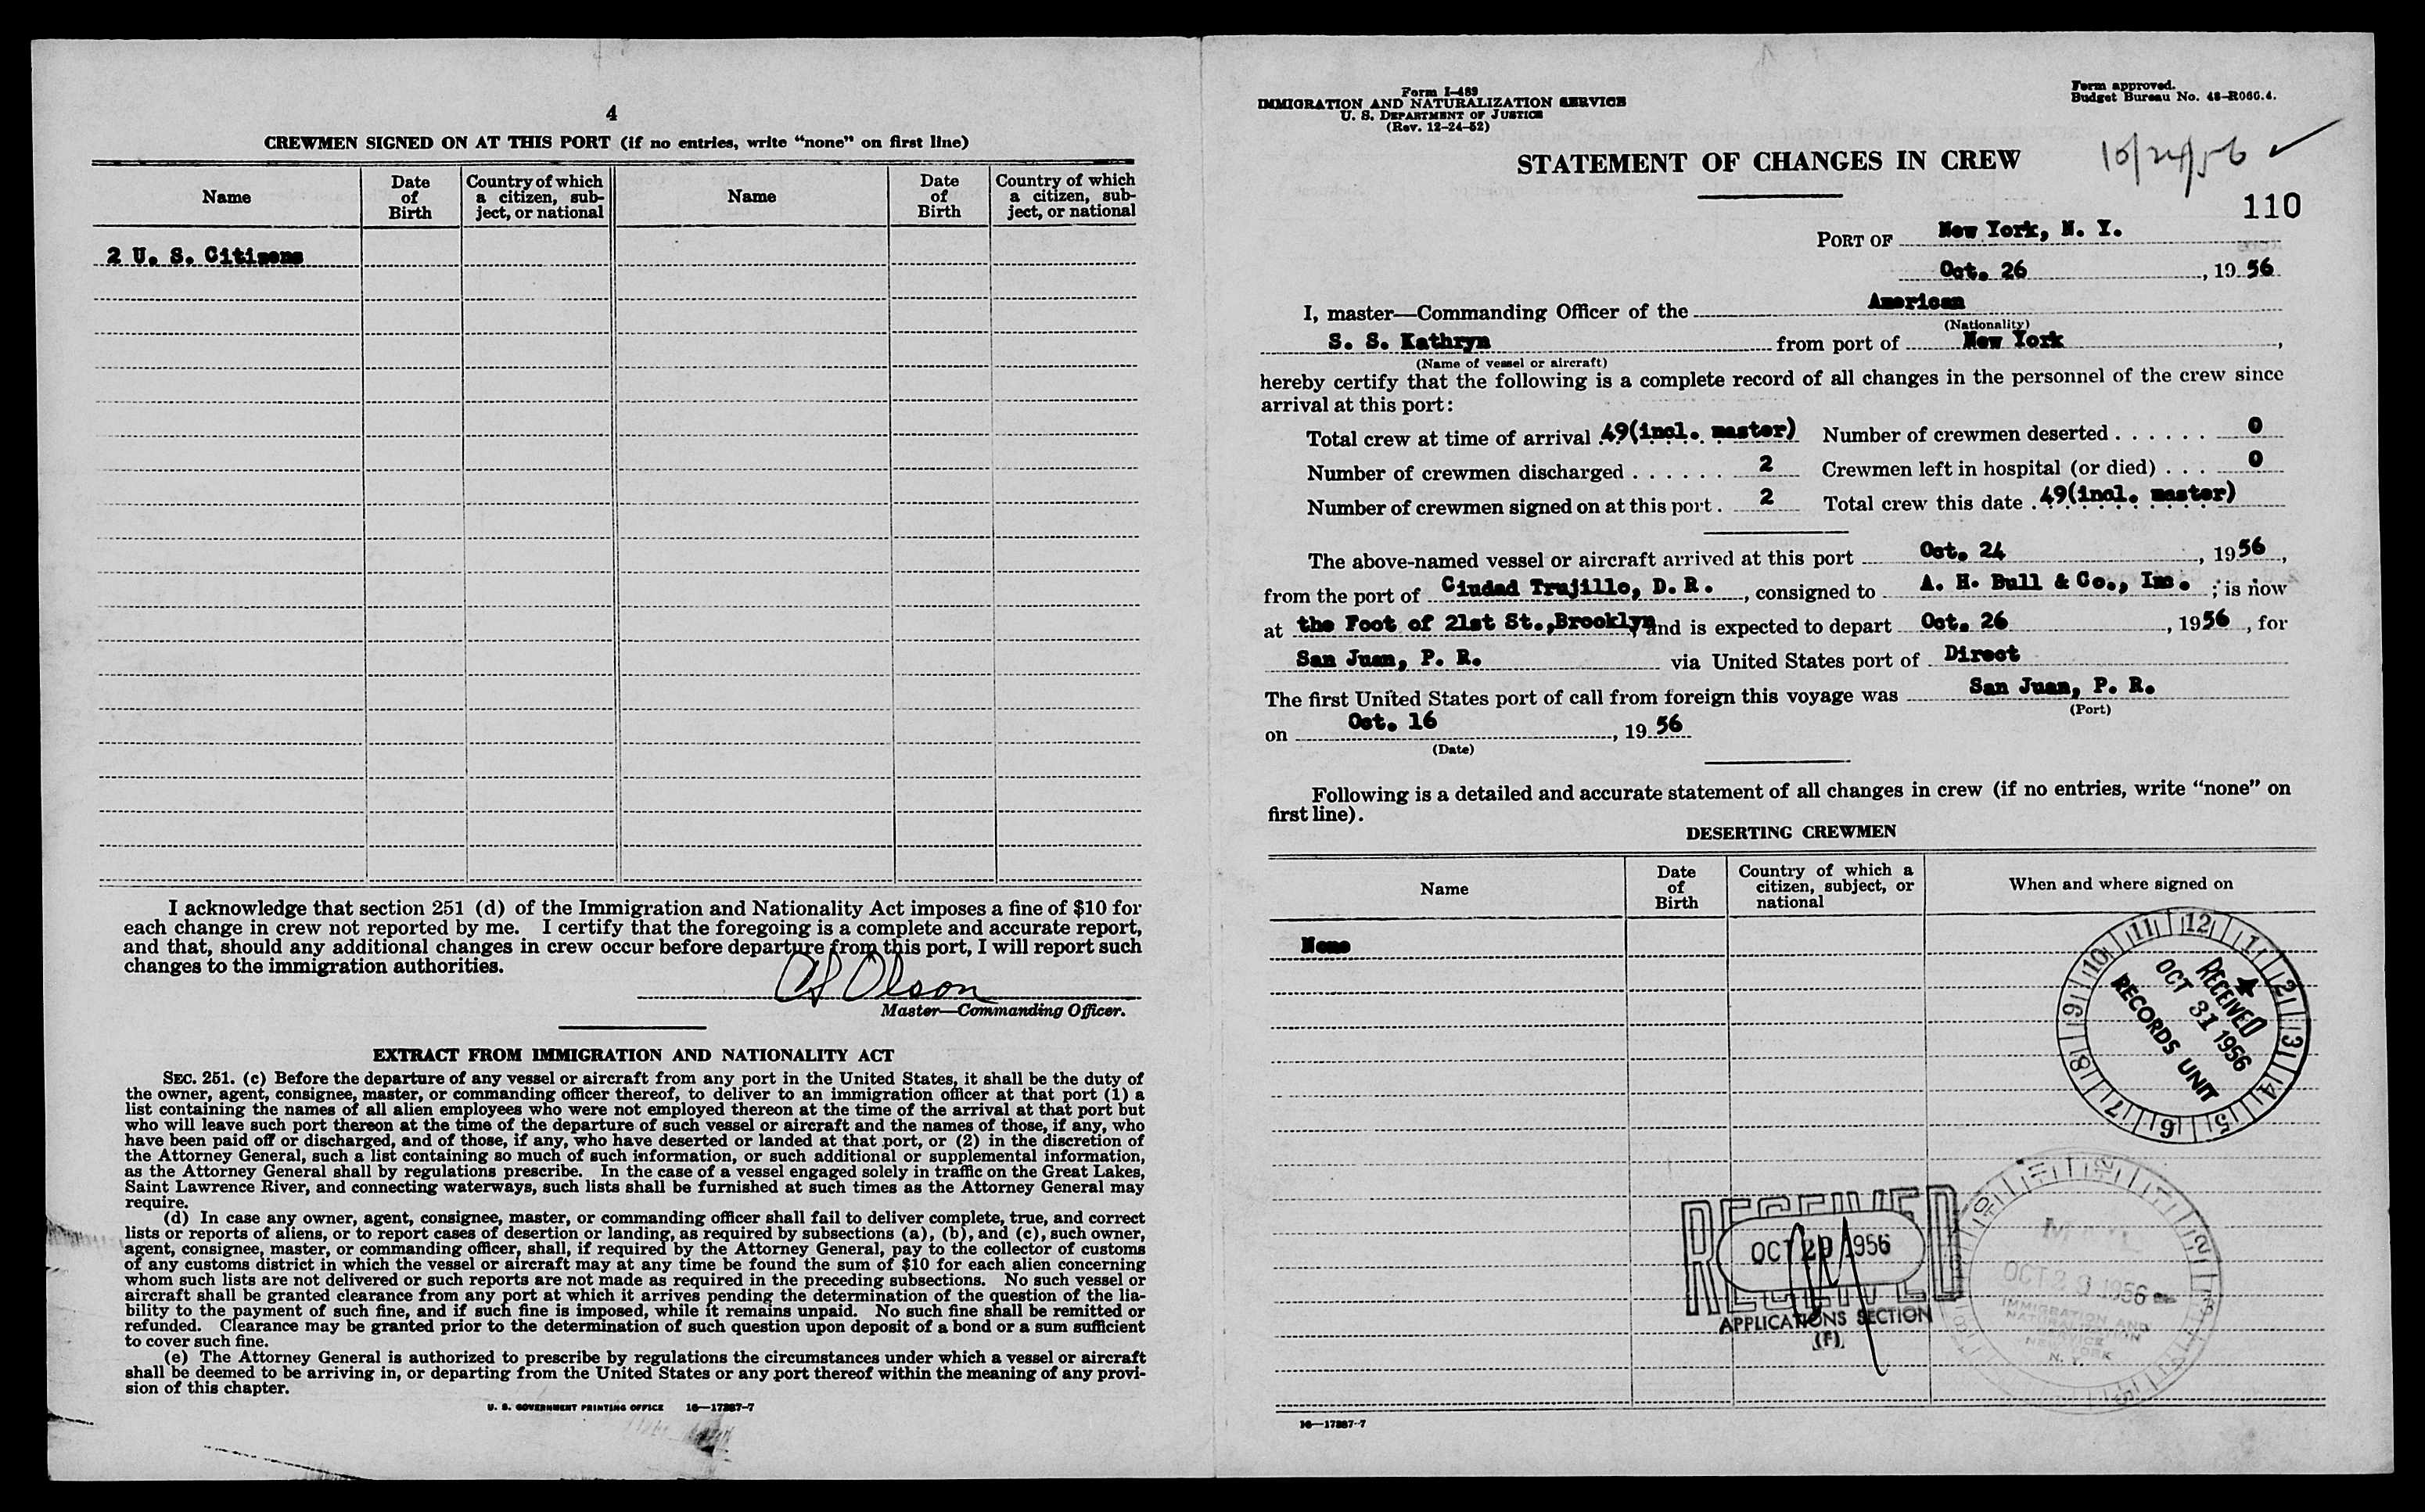 4
CREWMEN SIGNED ON AT THIS PORT (if no entries, write "none" on first line)
Name Date of Birth Country of which a citizen, subject, or national Name Date of Birth Country of which a citizen, subject, or national
2 U. S. Citizens
I acknowledge that section 251 (d) of the Immigration and Nationality Act imposes a fine of $10 for
each change in crew not reported by me. I certify that the foregoing is a complete and accurate report,
and that, should any additional changes in crew occur before departure from this port, I will report such
changes to the immigration authorities.
Olson
Master—Commanding Officer.
EXTRACT FROM IMMIGRATION AND NATIONALITY ACT
SEC. 251. (c) Before the departure of any vessel or aircraft from any port in the United States, it shall be the duty of
the owner, agent, consignee, master, or commanding officer thereof, to deliver to an immigration officer at that port (1) a
list containing the names of all alien employees who were not employed thereon at the time of the arrival at that port but
who will leave such port thereon at the time of the departure of such vessel or aircraft and the names of those, if any, who
have been paid off or discharged, and of those, if any, who have deserted or landed at that port, or (2) in the discretion of
the Attorney General, such a list containing so much of such information, or such additional or supplemental information,
as the Attorney General shall by regulations prescribe. In the case of a vessel engaged solely in traffic on the Great Lakes,
Saint Lawrence River, and connecting waterways, such lists shall be furnished at such times as the Attorney General may
require.
(d) In case any owner, agent, consignee, master, or commanding officer shall fail to deliver complete, true, and correct
lists or reports of aliens, or to report cases of desertion or landing, as required by subsections (a), (b), and (c), such owner,
agent, consignee, master, or commanding officer, shall, if required by the Attorney General, pay to the collector of customs
of any customs district in which the vessel or aircraft may at any time be found the sum of $10 for each alien concerning
whom such lists are not delivered or such reports are not made as required in the preceding subsections. No such vessel or
aircraft shall be granted clearance from any port at which it arrives pending the determination of the question of the lia-
bility to the payment of such fine, and if such fine is imposed, while it remains unpaid. No such fine shall be remitted or
refunded. Clearance may be granted prior to the determination of such question upon deposit of a bond or a sum sufficient
to cover such fine.
(e) The Attorney General is authorized to prescribe by regulations the circumstances under which a vessel or aircraft
shall be deemed to be arriving in, or departing from the United States or any port thereof within the meaning of any provi-
sion of this chapter.
U. S. GOVERNMENT PRINTING OFFICE 16—17887-7
Form I-489
IMMIGRATION AND NATURALIZATION SERVICE
U. S. DEPARTMENT OF JUSTICE
(Rev. 12-24-52)
Form approved.
Budget Bureau No. 43-R066.4.
STATEMENT OF CHANGES IN CREW
10/24/56 ✓
110
PORT OF New York, N. Y.
Oct. 26, 1956
I, master—Commanding Officer of the American
(Nationality)
S. S. Kathryn from port of New York,
(Name of vessel or aircraft)
hereby certify that the following is a complete record of all changes in the personnel of the crew since
arrival at this port:
Total crew at time of arrival 49(incl. master) Number of crewmen deserted . . . . . . 0
Number of crewmen discharged . . . . . . 2 Crewmen left in hospital (or died) . . . 0
Number of crewmen signed on at this port . 2 Total crew this date . 49(incl. master)
The above-named vessel or aircraft arrived at this port Oct. 24, 1956,
from the port of Ciudad Trujillo, D. R., consigned to A. H. Bull & Co., Inc. ; is now
at the Foot of 21st St.,Brooklyn, and is expected to depart Oct. 26, 1956, for
San Juan, P. R. via United States port of Direct
The first United States port of call from foreign this voyage was San Juan, P. R.
(Port)
on Oct. 16, 1956
(Date)
Following is a detailed and accurate statement of all changes in crew (if no entries, write "none" on
first line).
DESERTING CREWMEN
Name Date of Birth Country of which a citizen, subject, or national When and where signed on
None
12 1 2 3 4 5 6 7 8 9 10 11
4
RECEIVED
OCT 31 1956
RECORDS UNIT
RECEIVED
OCT 29 1956
APPLICATIONS SECTION
(F)
OCT 29 1956
IMMIGRATION AND
NATURALIZATION
SERVICE
NEW YORK
N. Y.
16—17887-7